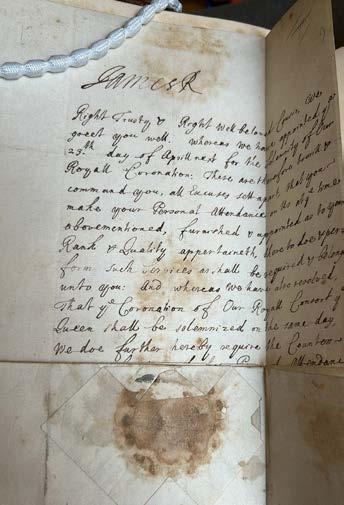 James R
Right Trusty & Right Well beloved Cousin, We
greet you well. Whereas we have appointed ye
23th day of Aprill next for the Solemnity of Our
Royall Coronation: These are therefore to will &
command you, all Excuses set apart, that you
make your Personal Attendance on Us at ye time
abovementioned, furnished & appointed as to your
Rank & Quality appertaineth, there to doe & per=
form such Services as shall be required & belong
unto you: And whereas We have also resolved,
that ye Coronation of Our Royall Consort ye
Queen shall be solemnized on the same day
We doe further hereby require the Countess
Attendance